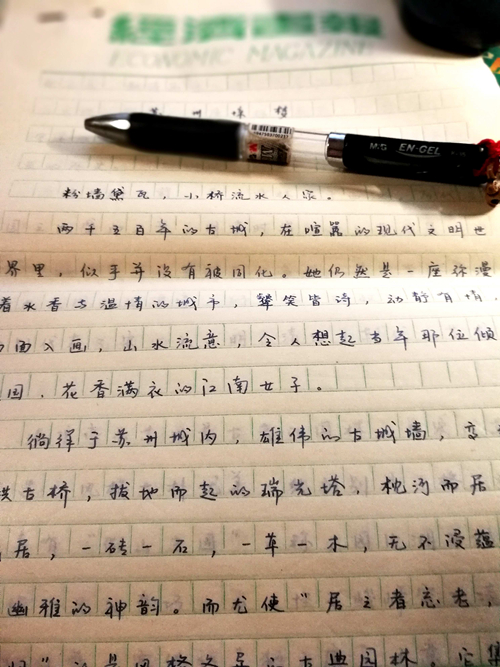 ECONOMIC MAGAZINE
M&G EN-GEL
苏州
粉墙黛瓦，小桥流水人家。
两千五百年的古城，在喧嚣的现代文明世
界里，似乎并没有被同化。她仍然是一座弥漫
着水香与温情的城市，颦笑皆诗，动静有情，
面入画，山水流意，令人想起当年那位倾
国，花香满衣的江南女子。
徜徉于苏州城内，雄伟的古城墙，
拱古桥，拔地而起的瑞光塔，枕河而居
居，一砖一石，一草一木，无不浸蕴
幽雅的神韵。而尤使“居之者忘老，
古典园林